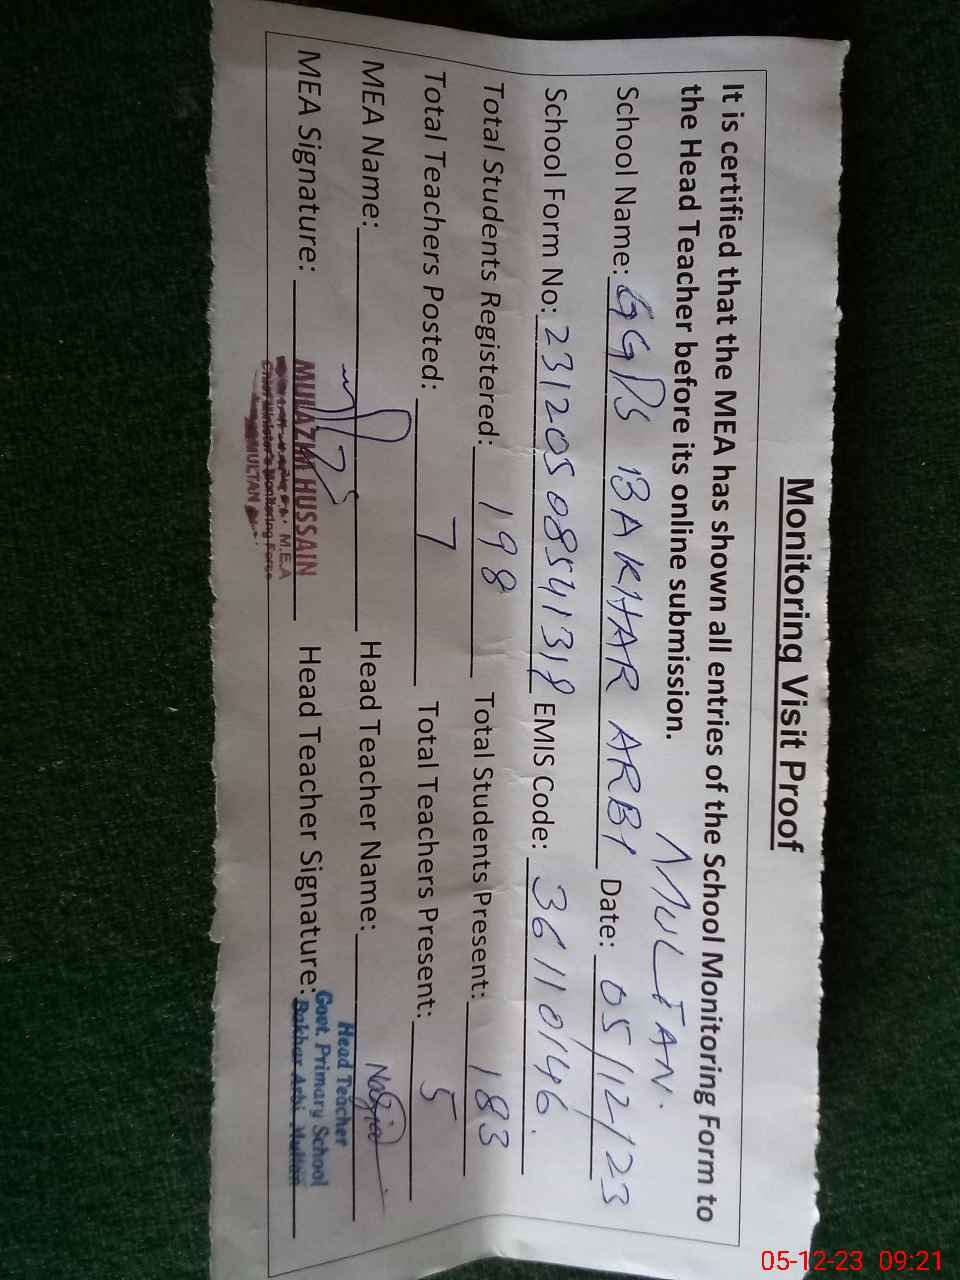 Monitoring Visit Proof
It is certified that the MEA has shown all entries of the School Monitoring Form to
the Head Teacher before its online submission.
MULTAN.
School Name: GGPS BAKHAR ARBI Date: 05/12/23
School Form No: 23120508541318 EMIS Code: 36110146.
Total Students Registered: 198 Total Students Present: 183
Total Teachers Posted: 7 Total Teachers Present: 5
MEA Name: Head Teacher Name: Nazia
MEA Signature: Head Teacher Signature:
MULAZIM HUSSAIN
M.E.A
Chief Minister's Monitoring Force
MULTAN
Head Teacher
Govt. Primary School
Bakhar Arbi Multan
05-12-23 09:21